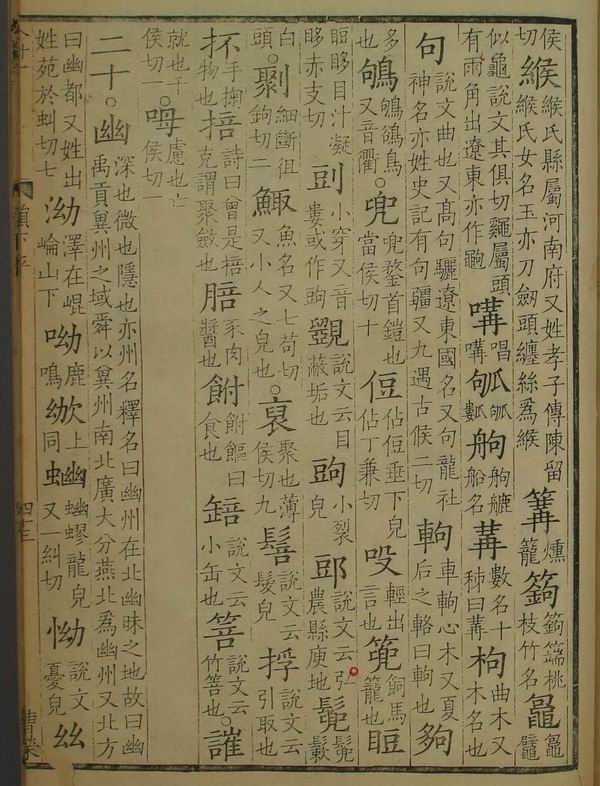 侯切 緱緱氏縣屬河南府又姓孝子傳陳留緱氏女名玉亦刀劒頭纏絲爲緱 篝燻籠 桃枝竹名
似龜說文其俱切鼅屬頭有兩角出遼東亦作 唱 船名 冓數名十秭曰冓 枸曲木又木名也
句說文曲也又高句驪遼東國名又句龍社神名亦姓史記有句疆又九遇古候二切 軥車軥心木又夏后之輅曰軥也 夠
多也 又音衢。兜兜鍪首鎧也當侯切十 侸佔侸垂下皃佔丁兼切 吺輕出言也 篼飼馬籠也
眵目汁凝眵赤支切 剅小穿又音婁或作 覴說文云目蔽垢也 小裂皃 郖說文云弘農縣庾地
白頭。細斷徂鉤切二 鯫魚名又七苟切又小人之皃也。裒聚也薄侯切九 說文云髮皃 捊說文云引取也
抔手掬物也 掊詩曰曾是掊克謂聚斂也 豕肉醬也 曰食也 說文云小缶也 箁說文云竹箁也。
就也千侯切一。呣慮也亡侯切一
二十。幽深也微也隱也亦州名釋名曰幽州在北幽昧之地故曰幽禹貢冀州之域舜以冀州南北廣大分燕北爲幽州又北方
曰幽都又姓出姓苑於虯切七 泑澤在崐崘山下 呦鹿鳴 㕭上同 蚴蚴蟉龍皃又一糾切 怮說文憂皃 幺